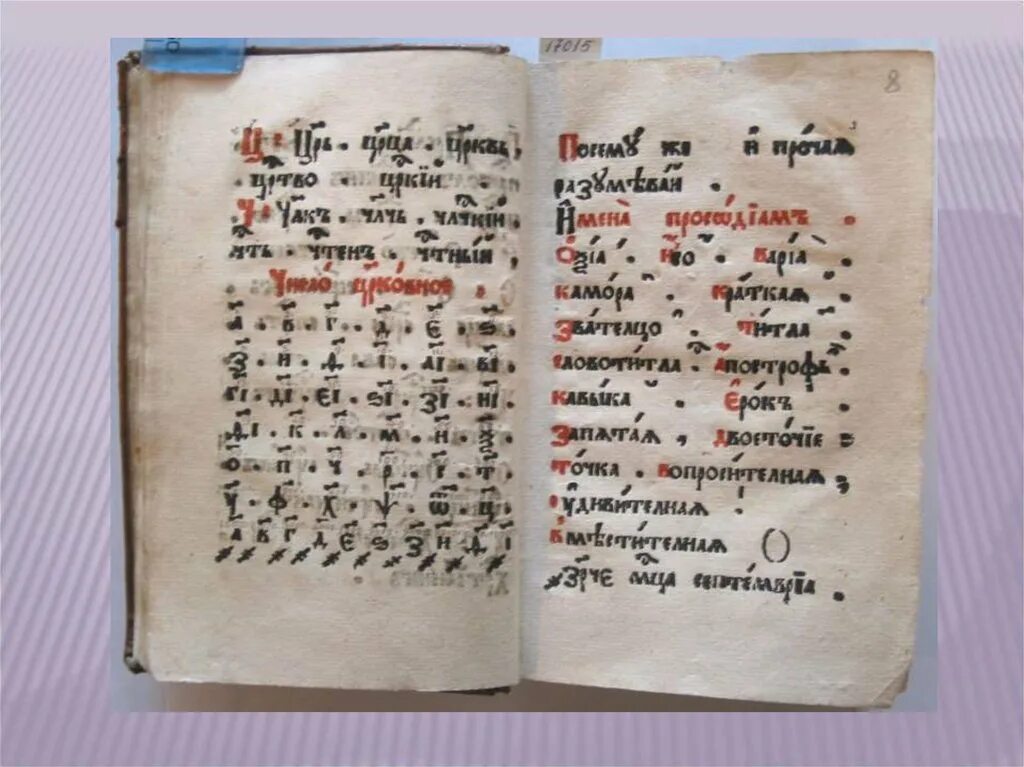 17015
8
Ц҃ · Цр҃ь · цр҃ца · цр҃квь
црт҃во · црк҃їй
Ч · Чл҃къ · чл҃чь · чл҃чкїй
чт҃ь · чт҃енъ · чт҃ный
Число̀ цр҃ко́вное
а҃ · в҃ · г҃ · д҃ · є҃ · ѕ҃
з҃ · и҃ · ѳ҃ · і҃ · аі҃ · ві҃
гі҃ · ді҃ · єі҃ · ѕі҃ · зі҃ · иі҃
ѳі҃ · к҃ · л҃ · м҃ · н҃ · ѯ҃
о҃ · п҃ · ч҃ · р҃ · с҃ · т҃
у҃ · ф҃ · х҃ · ѱ҃ · ѿ҃ · ц҃
҂а҃ ҂в҃ ҂г҃ ҂д҃ ҂є҃ ҂ѕ҃ ҂з҃ ҂и҃ ҂ѳ҃ ҂і҃
Посемꙋ же и҆ про́чаѧ
разꙋмѣва́й .
И҆мена̀ просѡді́амъ .
Ѻ҆ѯі́а ́ . И҆́со ҆ . Варі́а ̀ .
Камо́ра ̑ . Кра́ткаѧ ̆ .
Зва́телцо . Ти́тла ҃ .
словоти́тла . А҆постро́фь .
Кавы́ка . Є҆ро́къ .
Запѧта́ѧ , двоето́чїе :
То́чка . вопроси́телнаѧ ;
ᲂу҆диви́телнаѧ !
Вмѣсти́телнаѧ ()
҂зр҃че мц҃а септе́мврїа .